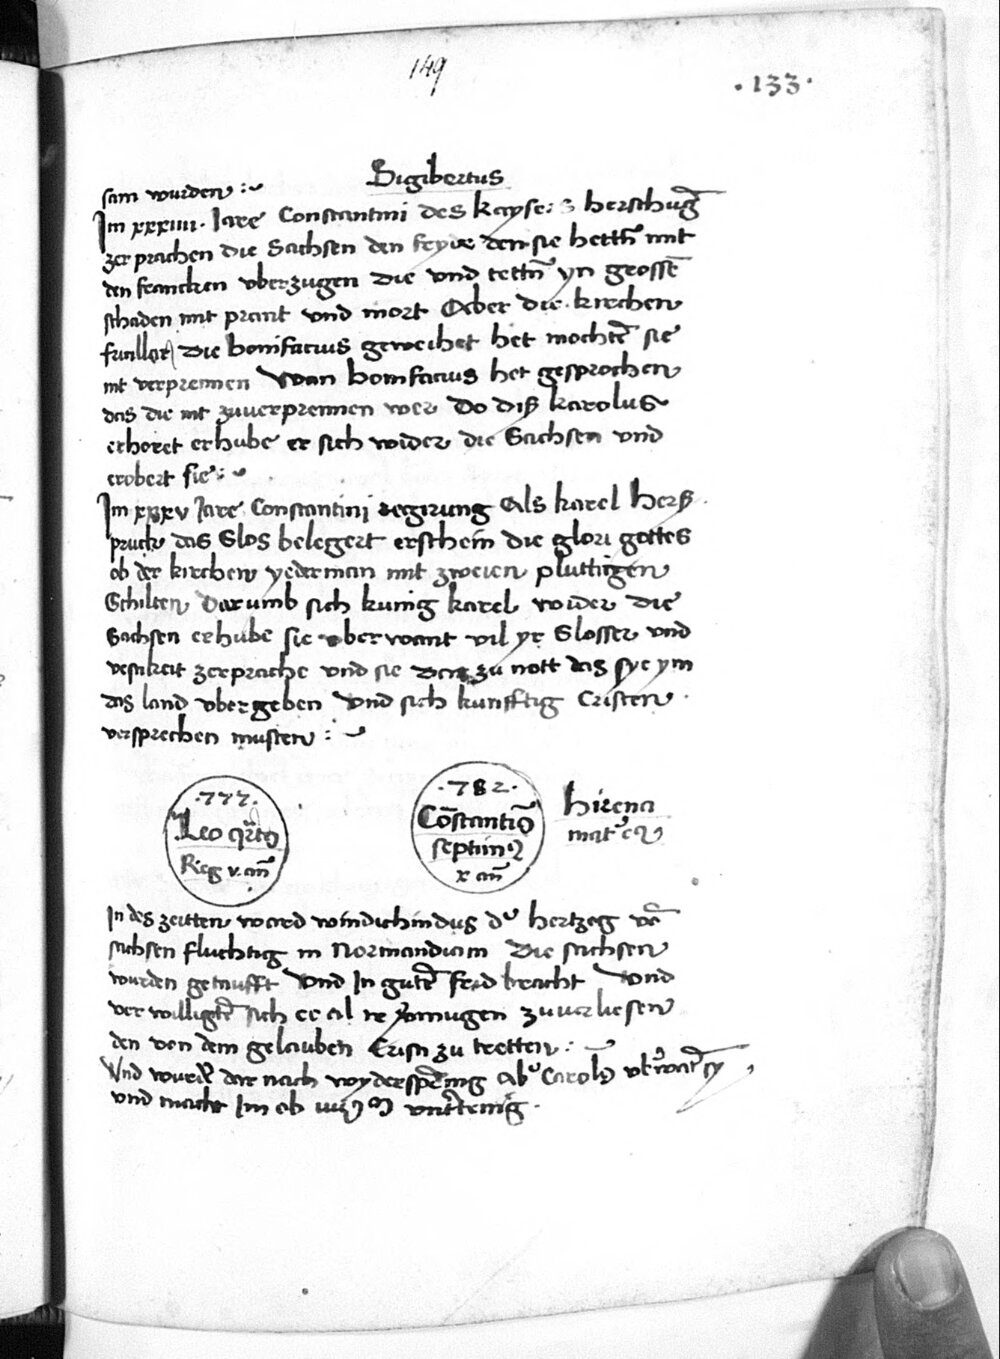 149
·133·
Sigibertus
sam wurden
Im xxxiiii. Iare Constantini des kaysers herschung
zerprachen die Sachsen den den sie hettn mit
den francken vberzugen die vnd tettn yn grossen
schaden mit prant vnd mort Aber die kirchen
die bonifacius geweihet het mochten sie
nit verprennen Wan bonifacius het gesprochen
das die nit zuuerprennen wer Do diß karolus
erhoret erhube er sich wider die Sachsen vnd
erobert sie
Im xxxv Iare Constantini regirung Als karel herß
pruck das Slos belegert erschein die glori gottes
ob der kirchen yederman mit zweien pluttigen
Schilten Darumb sich kunig karel wider die
Sachsen erhube sie vberwant vil yr Slosser vnd
vestikeit zerprache vnd sie dar zu nott das sye ym
das land vbergeben vnd sich kunfftig Cristen
versprechen musten
·777·
Leo qrtus
Reg v. an
·782·
Constantinus
septimus
x an
hirena
mater eius
In des zeitten ward windichindus der hertzog von
sachsen fluchtig in Normandiam Die sachsen
wurden getaufft vnd In guten frid bracht vnd
verwilligten sich ee al ir vermugen zuuerliesen
den von dem gelauben Cristi zu tretten
Vnd wurden dar nach wydersprenig aber Carolus vberwant sy
vnd macht Im ob vnttenig